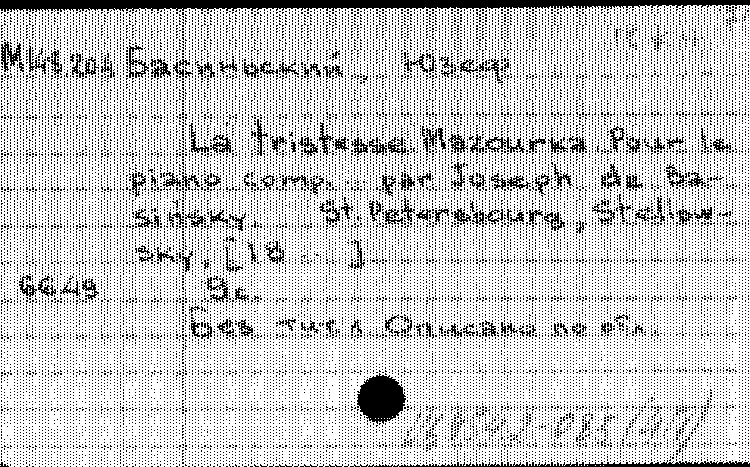 М 145.201 Басиньский, Юзеф
La tristesse. Mazourka. Pour le
piano comp. par Joseph de Ba-
sińsky. St.Petersbourg, Stellow-
sky, [18 ]
6649 9 с.
Без тит. л. Описано по обл.